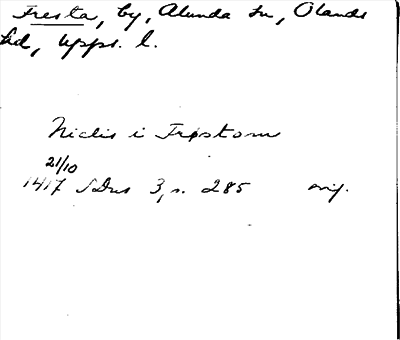 Fresta, by, Alunda sn, Olands
hd, Upps. l.
Niclis i Frøstom
21/10
1417 SDns 3, s. 285 orig.